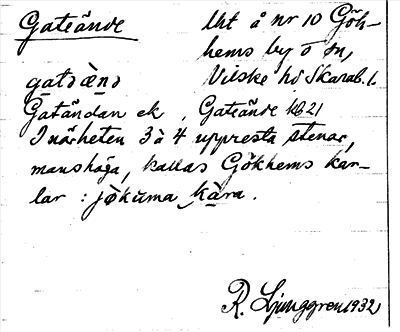 Gateände
Uht å nr 10 Gök-
hems by o sn,
gatəàenə
Vilske hd Skarab. l.
Gatändan ek, Gateände kb 21
I närheten 3 à 4 uppresta stenar,
manshöga, kallas Gökhems kar-
lar : jökuma kàra.
R. Ljunggren 1932